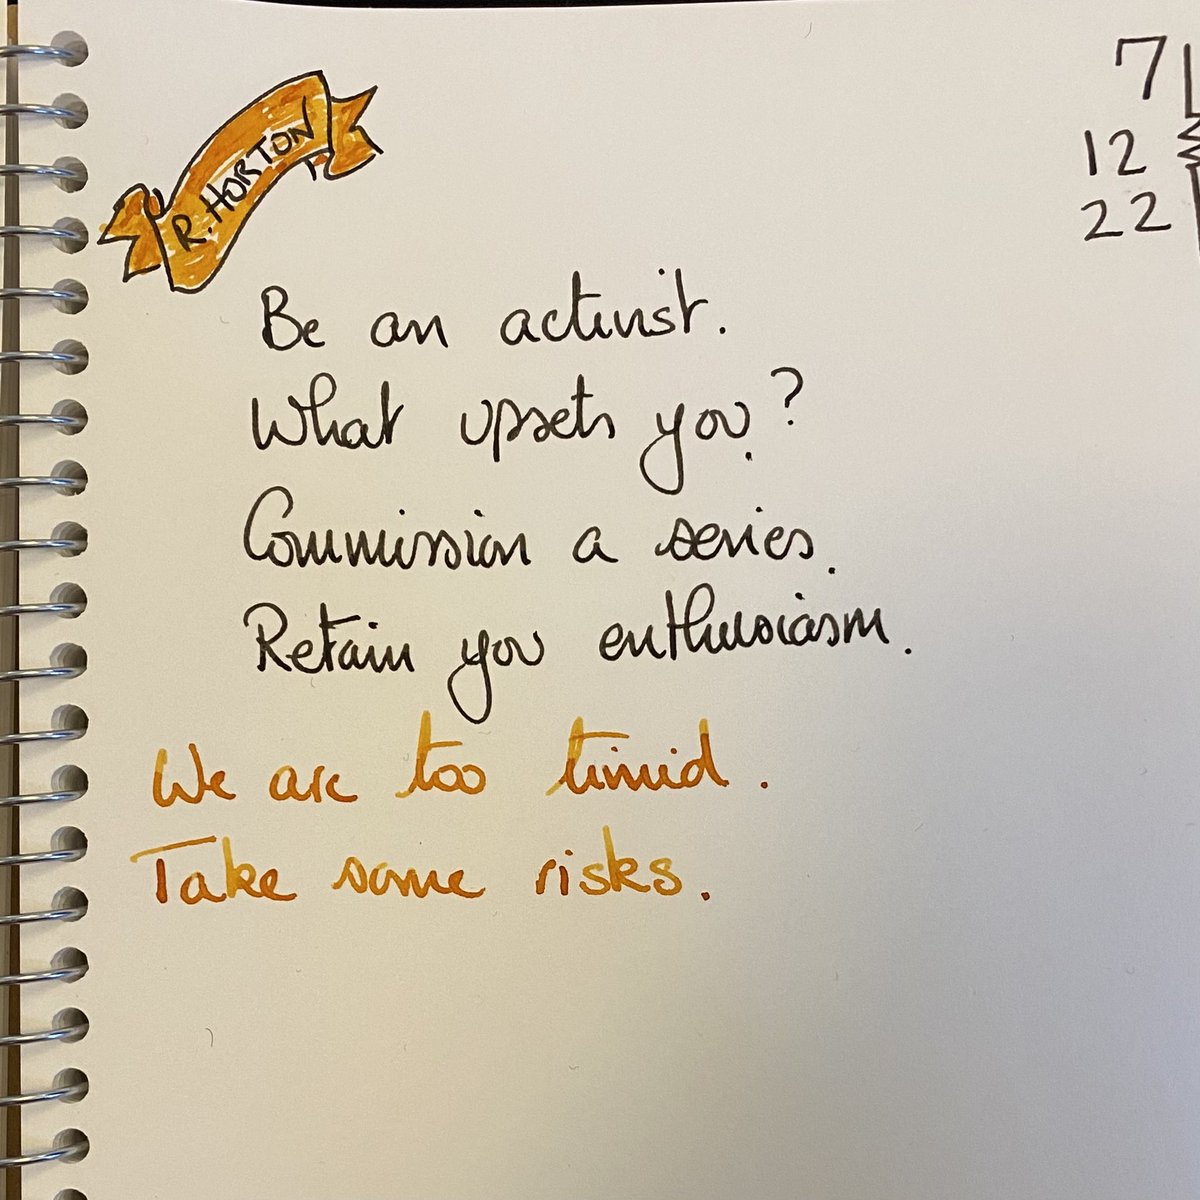 R. HORTON
7
12
22
Be an activist.
What upsets you?
Commission a series.
Retain you enthusiasm.
We are too timid.
Take some risks.